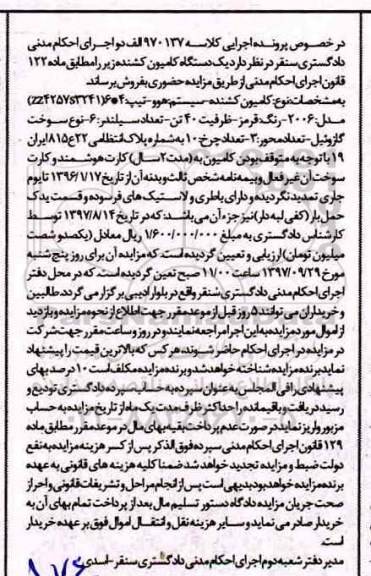 در خصوص پرونده اجرایی کلاسه ۹۷۰۱۳۷ الف دو اجرای احکام مدنی
دادگستری سنقر در نظر دارد یک دستگاه کامیون کشنده زیر را مطابق ماده ۱۲۲
قانون اجرای احکام مدنی از طریق مزایده حضوری بفروش برساند.
به مشخصات: نوع: کامیون کشنده - سیستم: هوو - تیپ
مدل: ۲۰۰۶ - رنگ: قرمز - ظرفیت ۴۰ تن - تعداد سیلندر: ۶ - نوع سوخت
گازوئیل - تعداد محور: ۳ - تعداد چرخ: ۱۰ به شماره پلاک انتظامی ۲۲ ع ۸۱۵ ایران
۱۹ با توجه به متوقف بودن کامیون به (مدت ۲ سال) کارت هوشمند و کارت
سوخت آن غیر فعال و بیمه نامه شخص ثالث و بدنه آن از تاریخ ۱۳۹۶/۱/۱۷ تا یوم
جاری تمدید نگردیده و دارای باطری و لاستیک های فرسوده و قسمت یدک
حمل بار (کفی لبه دار) نیز جزء آن می باشد: که در تاریخ ۱۳۹۷/۸/۱۴ توسط
کارشناس دادگستری به مبلغ ۱/۶۰۰/۰۰۰/۰۰۰ ریال معادل (یکصد و شصت
میلیون تومان) ارزیابی و تعیین گردیده است که مزایده آن برای روز پنج شنبه
مورخ ۱۳۹۷/۰۹/۲۹ ساعت ۱۱/۰۰ صبح تعین گردیده است. که در محل دفتر
اجرای احکام مدنی دادگستری سنقر واقع در بلوار ادیبی برگزار می گردد. طالبین
و خریداران می توانند ۵ روز قبل از موعد مقرر جهت اطلاع از نحوه مزایده و بازدید
از اموال مورد مزایده به این اجرا مراجعه نمایند و در روز و ساعت مقرر جهت شرکت
در مزایده در اجرای احکام حاضر شوند. هر کس که بالاترین قیمت را پیشنهاد
نماید برنده مزایده شناخته خواهد شد و برنده مزایده مکلف است ۱۰ درصد بهای
پیشنهادی را فی المجلس به عنوان سپرده به حساب سپرده دادگستری تودیع و
رسید دریافت و باقیمانده را حداکثر ظرف مدت یک ماه از تاریخ مزایده به حساب
مزبور واریز نماید در صورت عدم پرداخت بقیه بهای مال در موعد مقرر مطابق ماده
۱۲۹ قانون اجرای احکام مدنی سپرده فوق الذکر پس از کسر هزینه مزایده به نفع
دولت ضبط و مزایده تجدید خواهد شد ضمنا کلیه هزینه های قانونی به عهده
برنده مزایده خواهد بود بدیهی است پس از انجام مراحل و تشریفات قانونی و احراز
صحت جریان مزایده دادگاه دستور تسلیم مال بعد از پرداخت تمام بهای آن به
خریدار صادر می نماید و سایر هزینه نقل و انتقال اموال فوق بر عهده خریدار
است.
مدیر دفتر شعبه دوم اجرای احکام مدنی دادگستری سنقر - اسدی